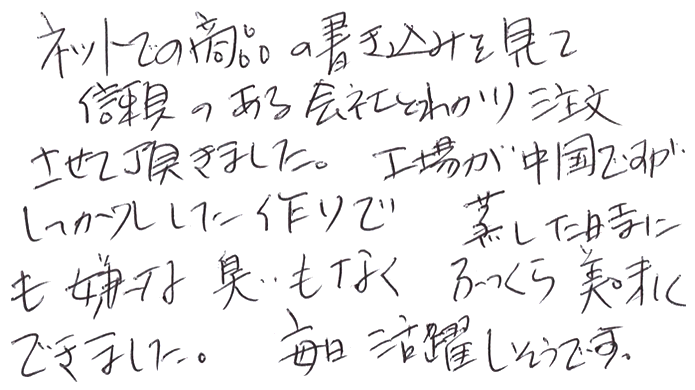 ネットでの商品の書き込みを見て
信頼のある会社とわかり注文
させて頂きました。工場が中国ですが
しっかりした作りで 蒸した時に
も嫌な臭いもなく ふっくら美味しく
できました。 毎日活躍しそうです。